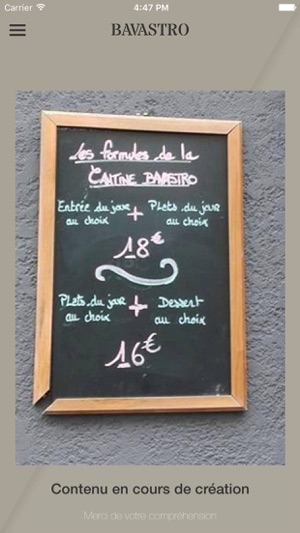 Carrier 4:47 PM
BAVASTRO
Les formules de la
CANTINE BAVASTRO
Entrée du jour + Plats du jour
au choix au choix
18€
Plats du jour + Dessert
au choix au choix
16€
Contenu en cours de création
Merci de votre compréhension